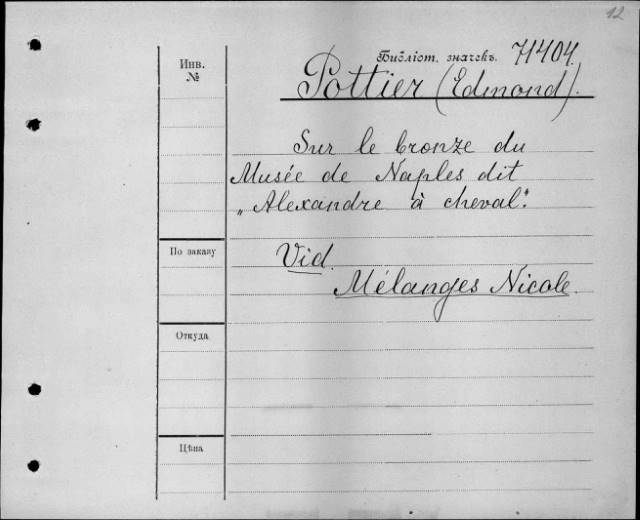 12
Библіот. значекъ. 71404.
Инв.
№
Pottier (Edmond).
Sur le bronze du
Musée de Naples dit
„Alexandre à cheval“.
По заказу
Vid.
Mélanges Nicole.
Откуда
Цѣна